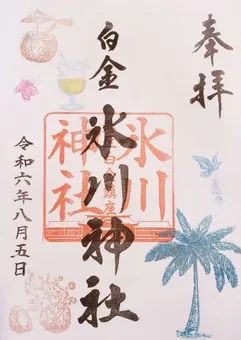 奉拝
白金
氷川神社
氷川
神社
令和六年八月五日